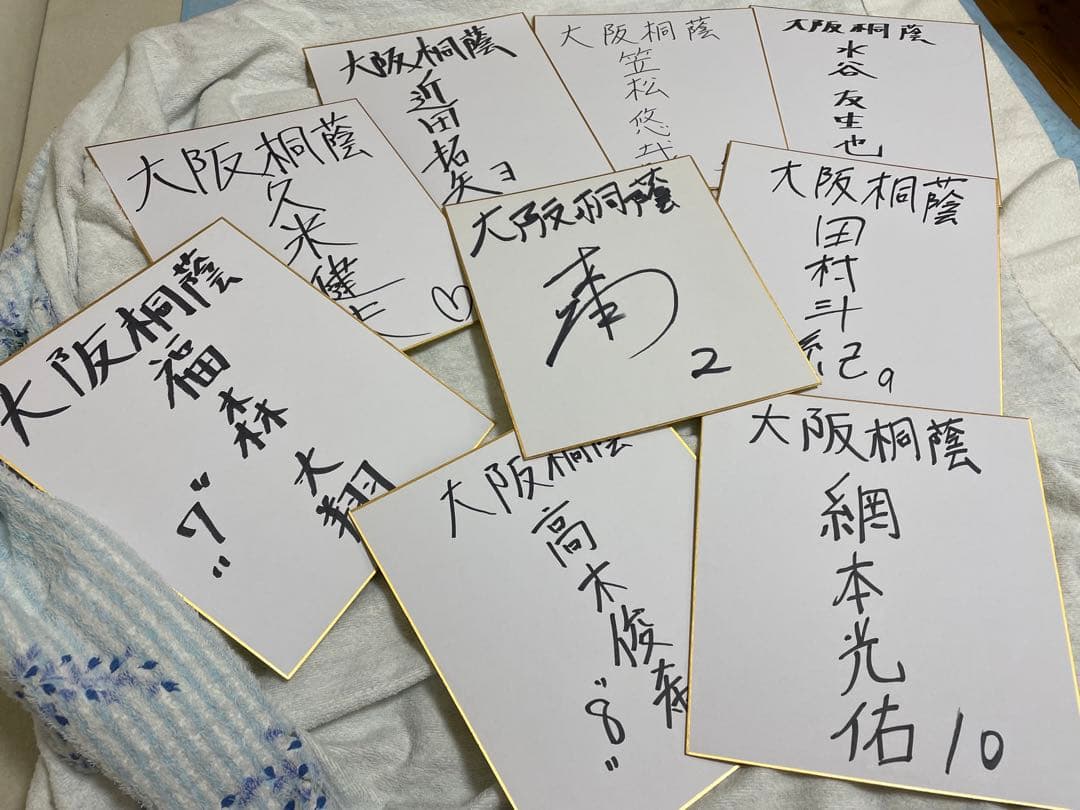 大阪桐蔭
近田拓矢
3
大阪桐蔭
笠松悠哉
大阪桐蔭
水谷友生也
大阪桐蔭
久米健夫
大阪桐蔭
2
大阪桐蔭
田村斗紀
9
大阪桐蔭
福森大翔
"7"
大阪桐蔭
高木俊希
"8"
大阪桐蔭
網本光佑
10